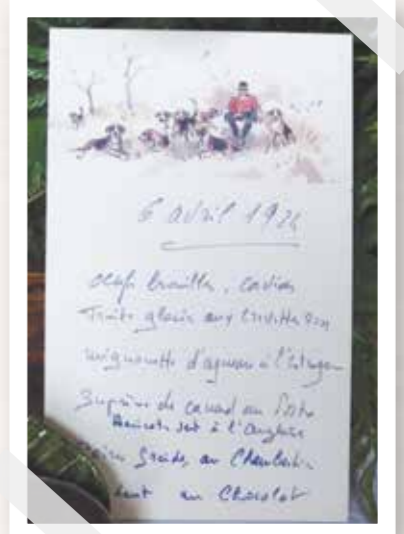 6 avril 1924
oeufs brouillés, caviar
Truite glacée aux Crevettes
mignonette d'agneau à l'estragon
Suprême de canard au Porto
Haricots vert à l'anglaise
au Chambertin
au Chocolat